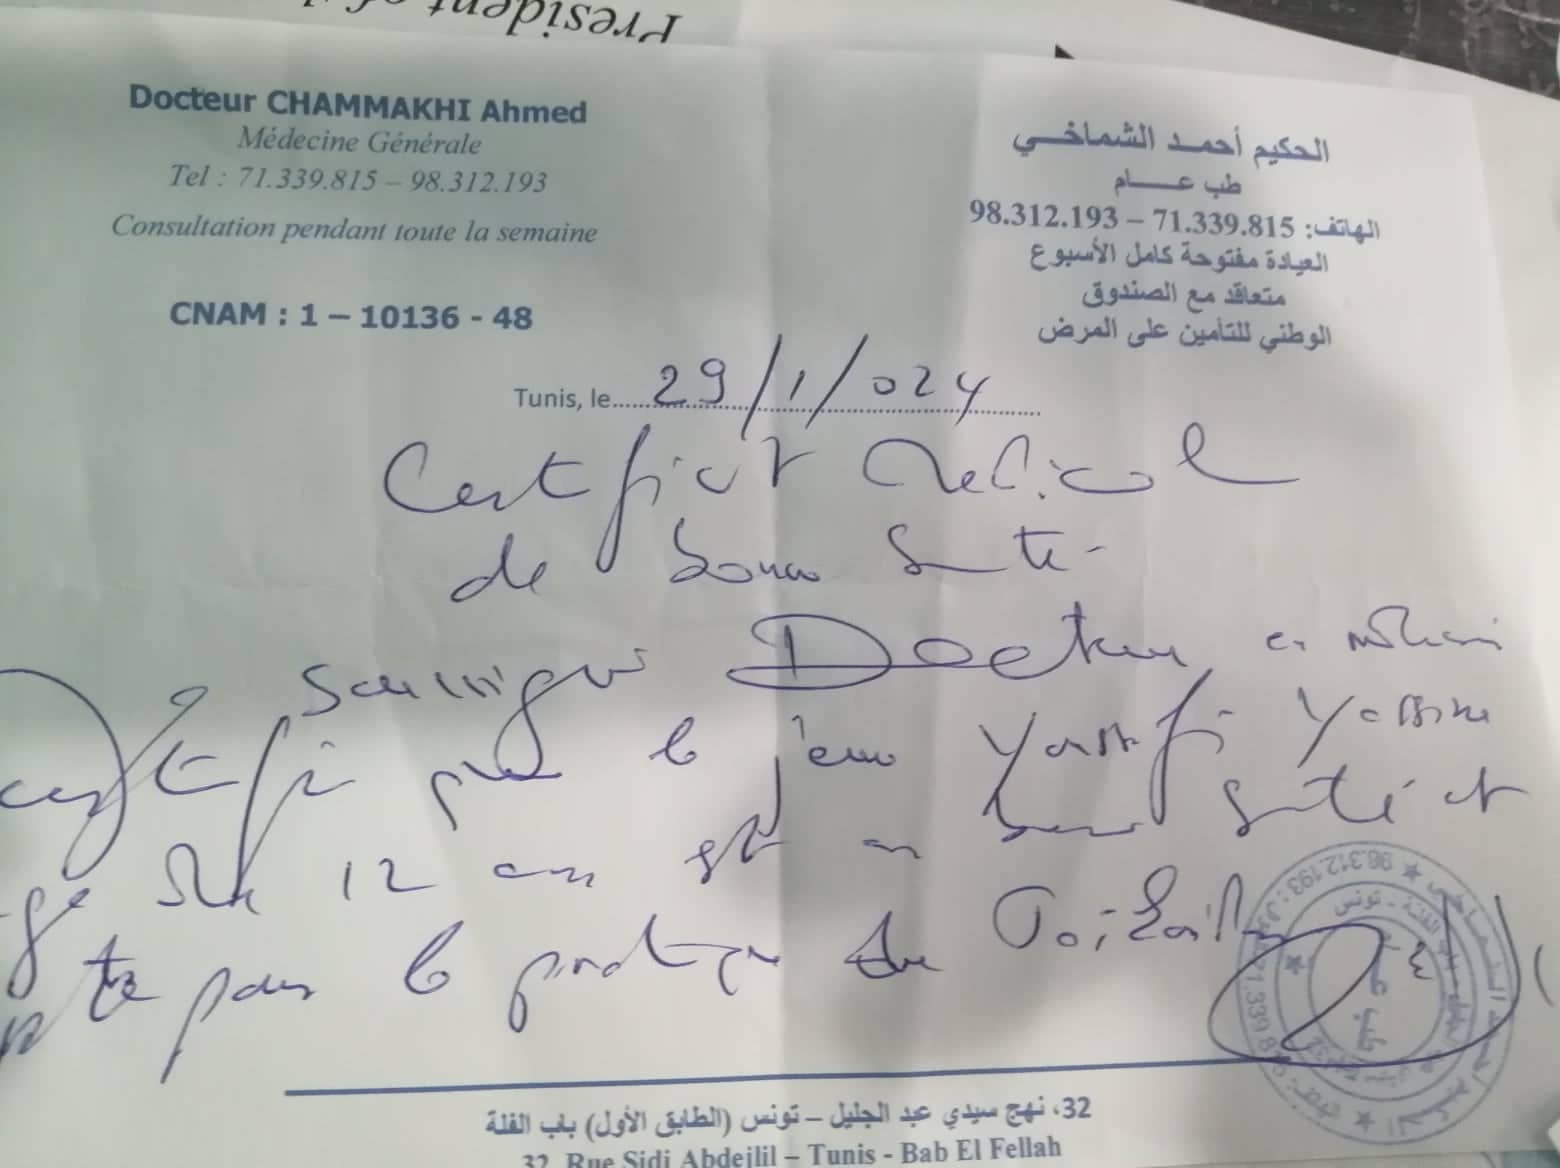 President of
Docteur CHAMMAKHI Ahmed
Médecine Générale
Tel : 71.339.815 – 98.312.193
Consultation pendant toute la semaine
CNAM : 1 – 10136 - 48
الحكيم أحمد الشماخي
طب عام
الهاتف: 71.339.815 – 98.312.193
العيادة مفتوحة كامل الأسبوع
متعاقد مع الصندوق
الوطني للتأمين على المرض
Tunis, le 29/1/024
Certificat Medical
de bonne Santé
Je soussigné Docteur
certifie que le jeune Yassine
âgé de 12 ans est en bonne santé et
apte pour la pratique du
32، نهج سيدي عبد الجليل – تونس (الطابق الأول) باب الفلة
32, Rue Sidi Abdejlil – Tunis - Bab El Fellah